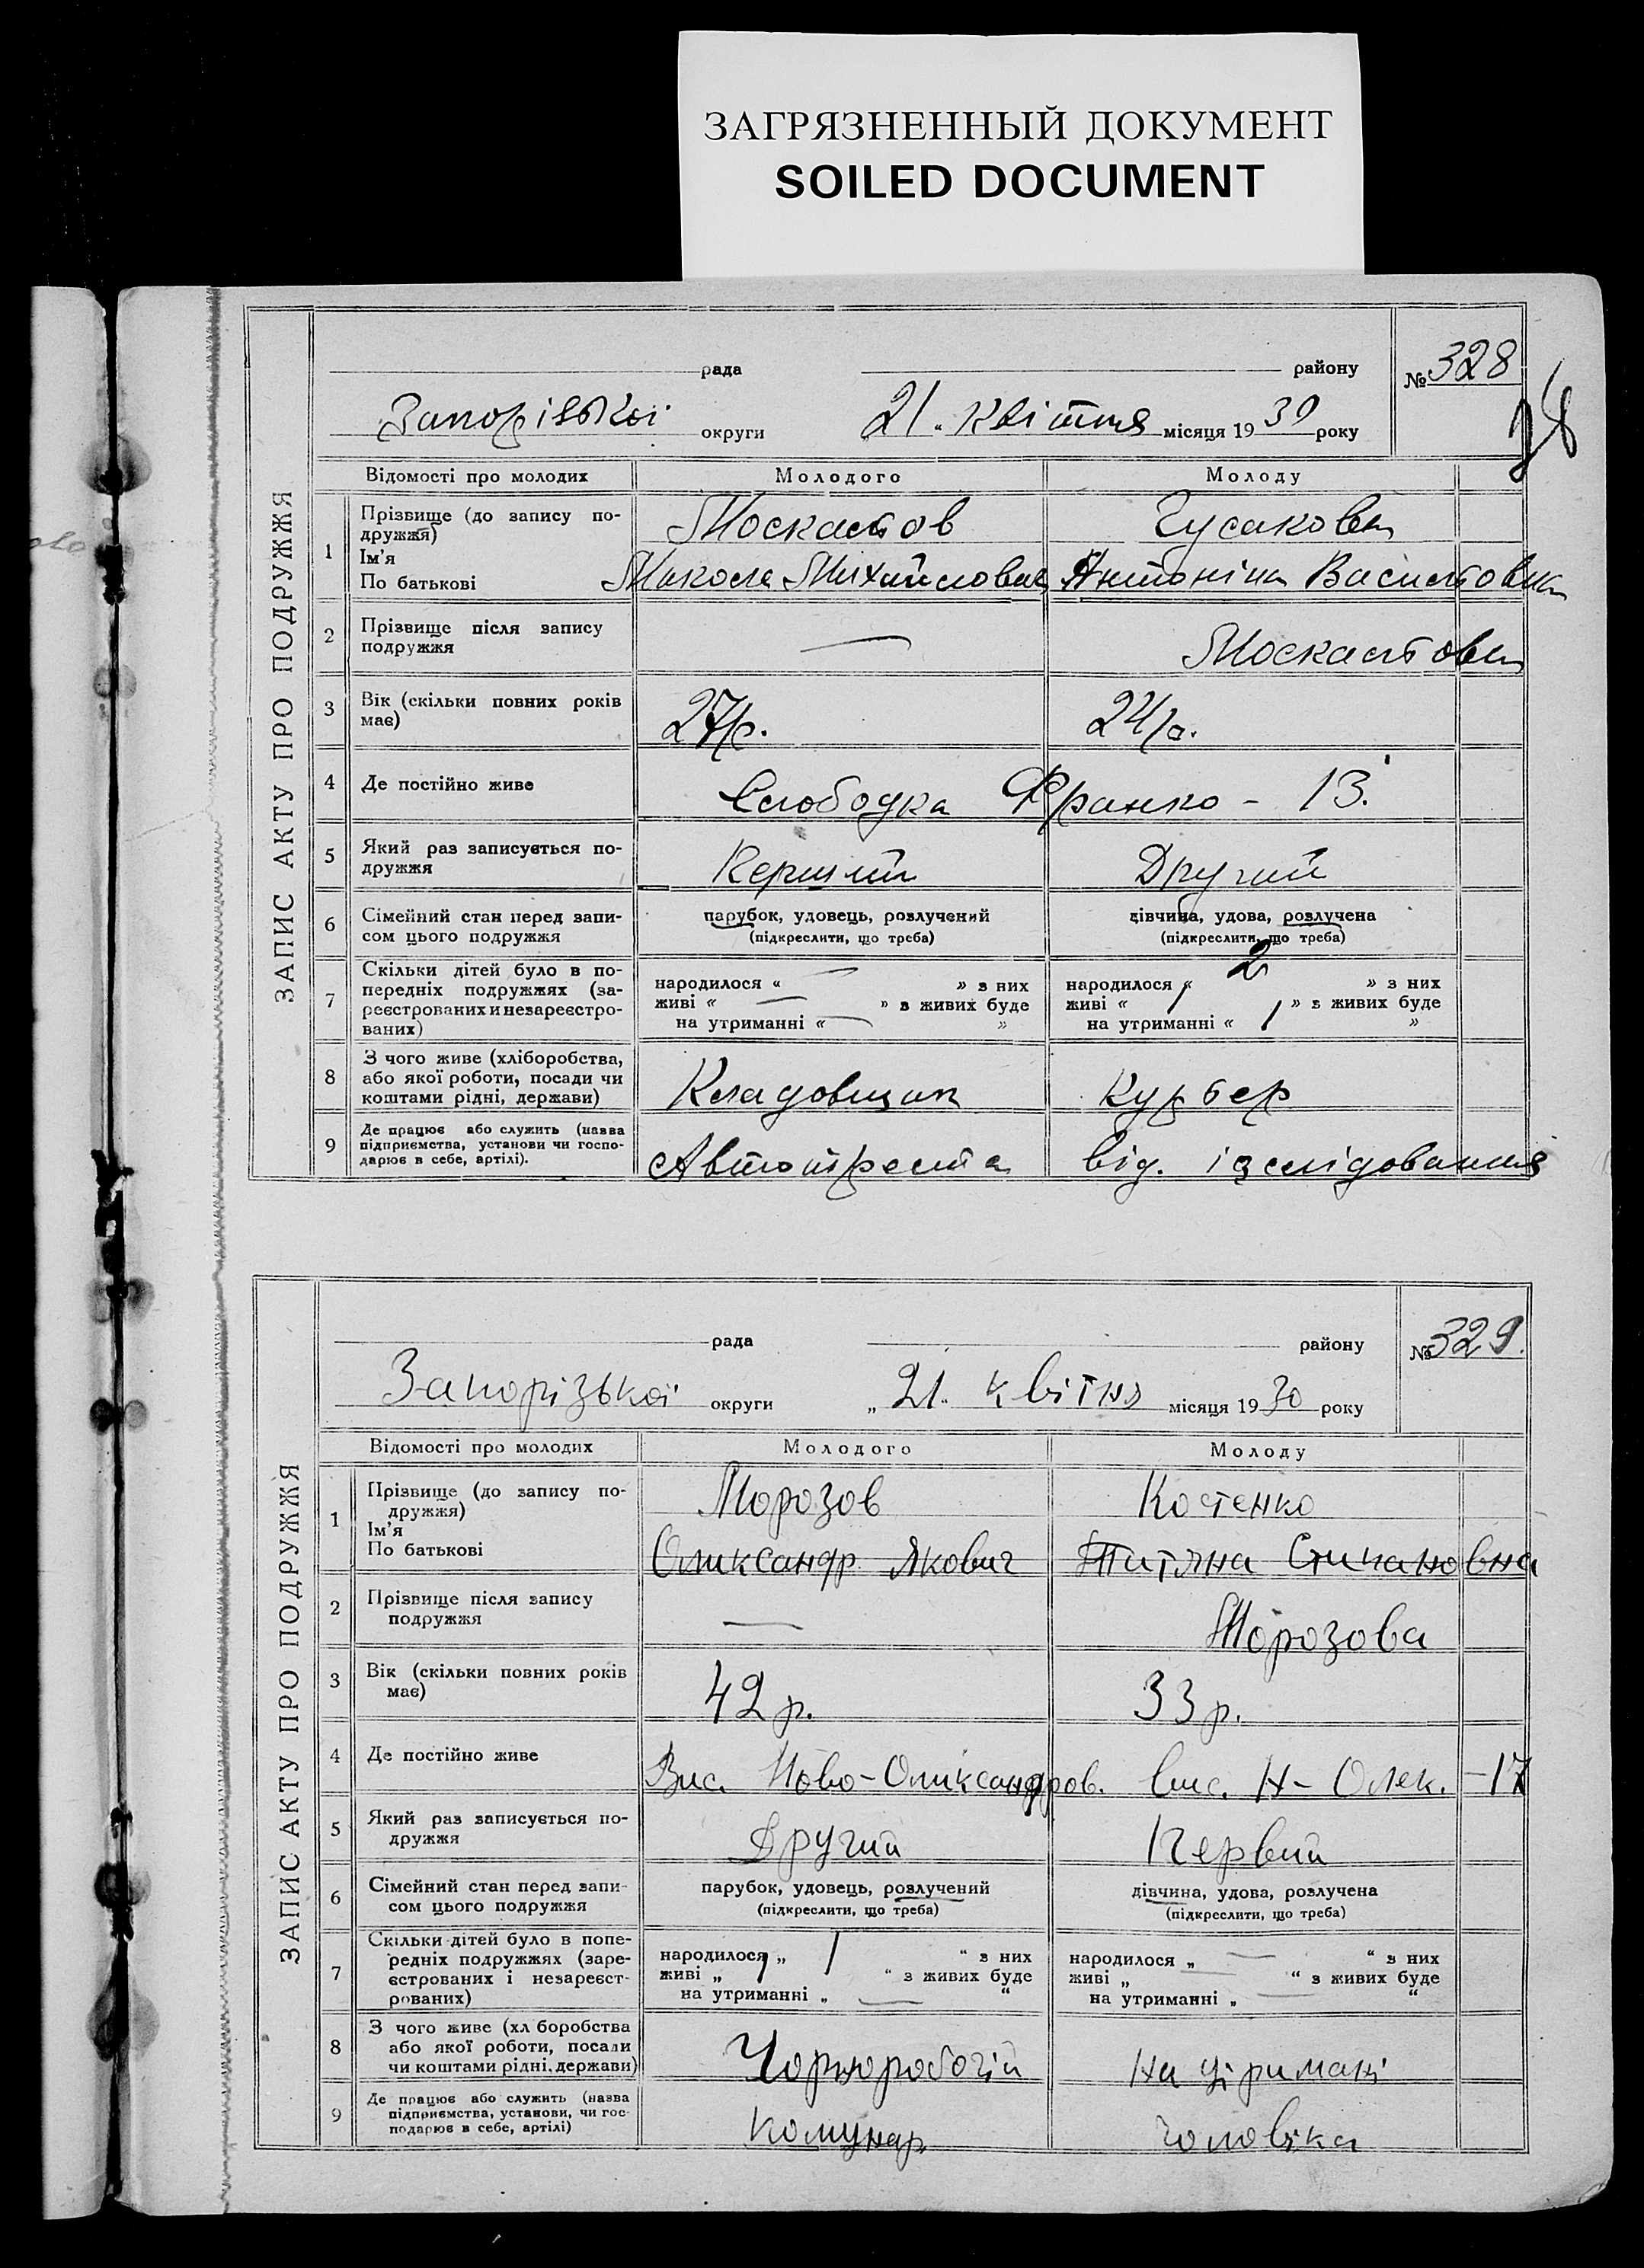 ЗАГРЯЗНЕННЫЙ ДОКУМЕНТ
SOILED DOCUMENT
ЗАПИС АКТУ ПРО ПОДРУЖЖЯ
рада району № 328
Запорізької округи 21. квітня місяця 1930 року
Відомості про молодих Молодого Молоду
1 Прізвище (до запису по-
дружжя) Гусакова
Ім'я
По батькові Микола Михайлович Антоніна
2 Прізвище після запису
подружжя —
3 Вік (скільки повних років
має) 27 р. 24 р.
4 Де постійно живе Слободка Франко - 13.
5 Який раз записується по-
дружжя Перший Другий
6 Сімейний стан перед запи-
сом цього подружжя
парубок, удовець, розлучений
(підкреслити, що треба)
дівчина, удова, розлучена
(підкреслити, що треба)
7 Скільки дітей було в по-
передніх подружжях (за-
реєстрованих и незареєстро-
ваних)
народилося « — » з них
живі « — » з живих буде
на утриманні « — »
народилося « 2 » з них
живі « 1 » з живих буде
на утриманні « 1 »
8 З чого живе (хліборобства,
або якої роботи, посади чи
коштами рідні, держави) Кладовщик Курьер
9 Де працює або служить (назва
підприємства, установи чи госпо-
дарює в себе, артілі). Автотреста від.
ЗАПИС АКТУ ПРО ПОДРУЖЖЯ
рада району № 329.
Запорізької округи „21" квітня місяця 1930 року
Відомості про молодих Молодого Молоду
1 Прізвище (до запису по-
дружжя) Морозов Костенко
Ім'я
По батькові Оликсандр Якович Титяна Стипановна
2 Прізвище після запису
подружжя — Морозова
3 Вік (скільки повних років
має) 42 р. 33 р.
4 Де постійно живе Вис. Ново-Оликсандров. вис. Н- Олек. -17
5 Який раз записується по-
дружжя Другий Первий
6 Сімейний стан перед запи-
сом цього подружжя
парубок, удовець, розлучений
(підкреслити, що треба)
дівчина, удова, розлучена
(підкреслити, що треба)
7 Скільки дітей було в попе-
редніх подружжях (заре-
єстрованих і незареєст-
рованих)
народилося „ 1 “ з них
живі „ 1 “ з живих буде
на утриманні „ — “
народилося „ — “ з них
живі „ — “ з живих буде
на утриманні „ — “
8 З чого живе (хл боробства
або якої роботи, посади
чи коштами рідні, держави) Чорноробочій На
9 Де працює або служить (назва
підприємства, установи, чи гос-
подарює в себе, артілі) Комунар чоловіка